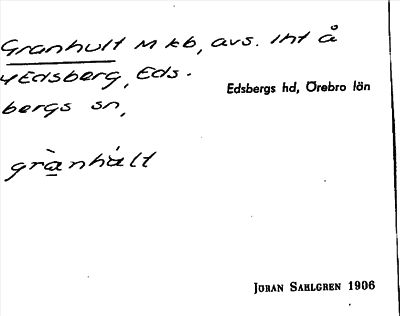 Granhult M kb, avs. Int å
4 Edsberg, Eds-
bergs sn,
Edsbergs hd, Örebro län
gràṉhált
JÖRAN SAHLGREN 1906